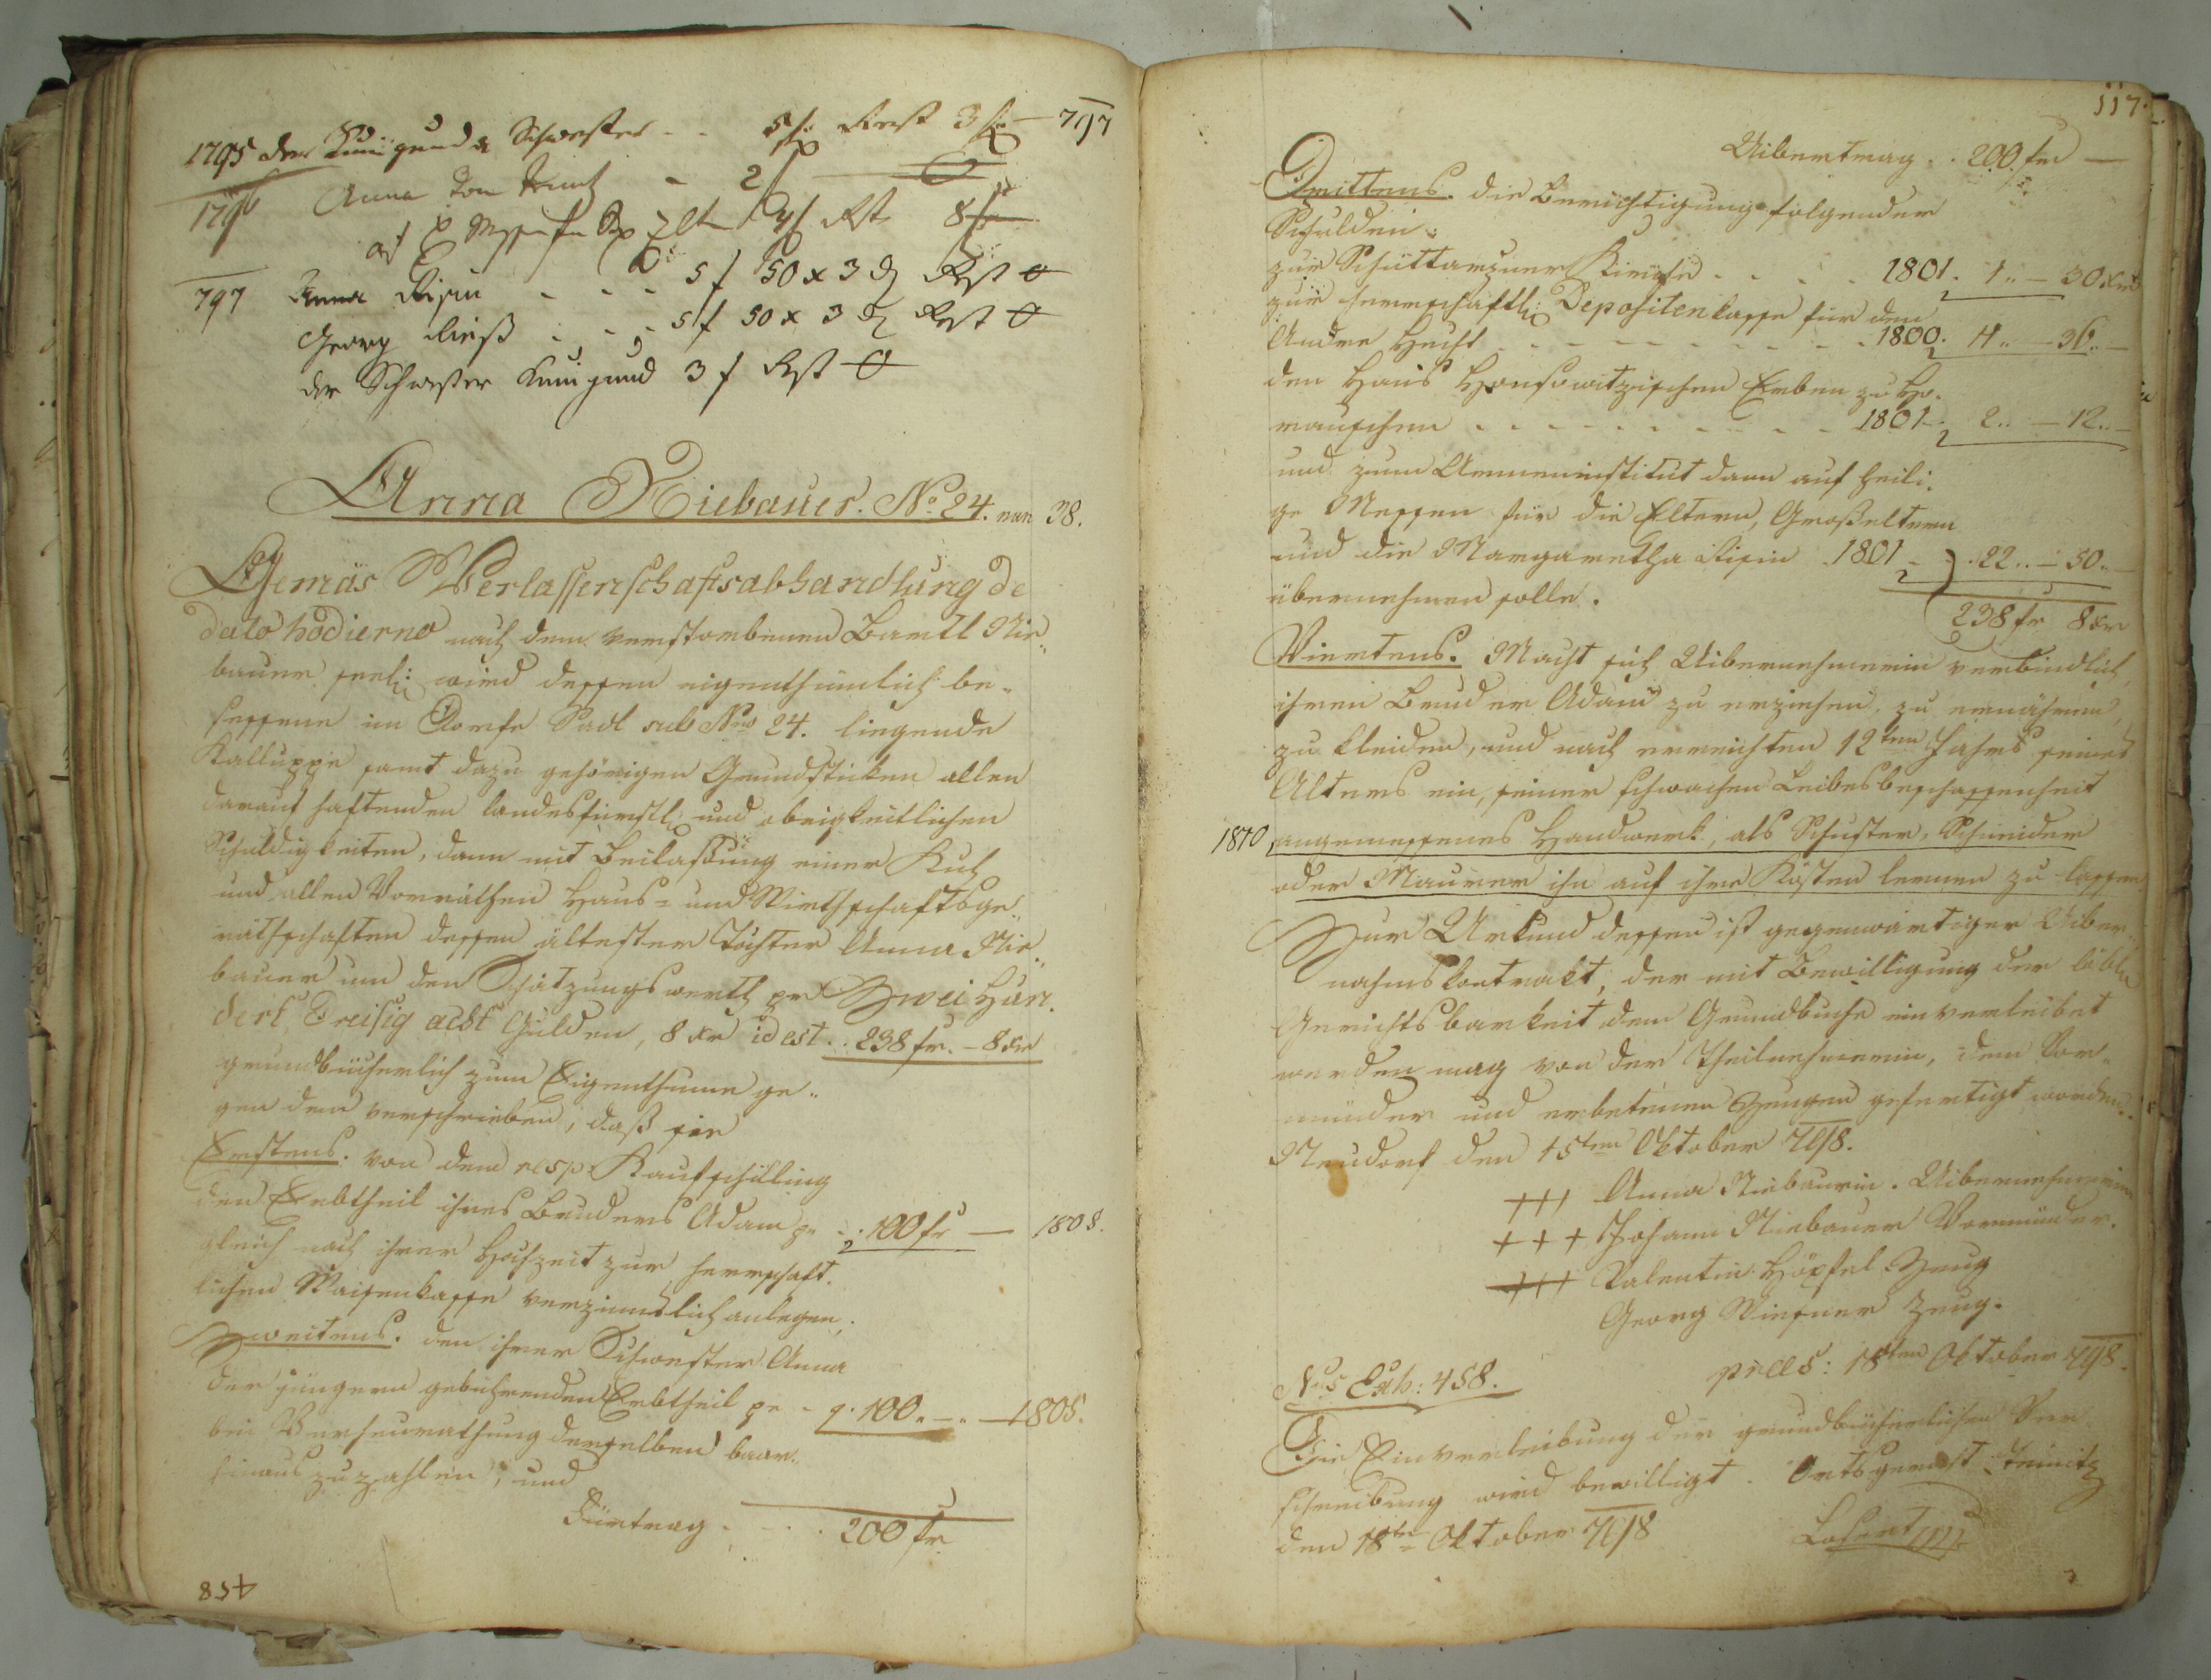 1795 der Kunigunda Schwester - - 5 f Rest 3 f — 797
1796 Anna - 2 f
4 f Rst 8 f
797 Anna Risin - - - 5 f 50 x 3 ₰ Rest 0
Georg Rieß - - - 5 f 50 x 3 ₰ Rest 0
der Schwester Kunigund 3 f Rst 0
Anna Niebauer. No. 24. nun 38.
Gemäs Verlassenschaftsabhandlung de
dato hodierno nach dem verstorbenen Bartl Nie-
bauer seel: wird dessen eigenthümlich be-
sessene im Dorfe Sadl sub Nro 24. liegende
Kalluppe samt dazu gehörigen Grundstücken allen
darauf haftenden landesfürstl: und obrigkeitlichen
Schuldigkeiten, dann mit Beilaßung einer Kuh
und allen Vorräthen Haus- und Wirthschaftsge-
räthschaften dessen ältester Tochter Anna Nie-
bauer um den Schätzungswerth pr Zwei Hun-
dert Dreisig acht Gulden, 8 xr id est .. 238 fr. - 8 xr
grundbücherlich zum Eigenthume ge-
gen dem verschrieben, daß sie
Erstens. von dem resp: Kaufschilling
den Erbtheil ihres Bruders Adam pr .. 100 fr — 1808.
gleich nach ihrer Hochzeit zur herrschaft-
lichen Waisenkasse verzinnslich anlegen,
Zweitens. den ihrer Schwester Anna
der jüngern gebührenden Erbtheil pr - 100 .. — .. — 1805.
bei Verheurathung derselben baar
hinauszuzahlen, und
Fürtrag - - . 200 fr
458
117.
Uibertrag . . 200 fr —
Drittens. die Berichtigung folgender
Schulden:
zur Schüttarzner Kirche . . . . 1801. 1 .. — 30 xr
zur herrschaftl: Depositenkasse für den
Andre Hecht - - - - - - - - - 1800. 11 .. — 36 .. —
den Hans Honsowitzischen Erben zu Ho-
mauschen - - - - - - - - - 1801. 2 .. — 12 .. —
und zum Armeninstitut dann auf heili-
ge Messen für die Eltern, Großeltern
und die Margaretha Risin 1801 - . 22 .. — 50 .. —
übernehmen solle. 238 fr 8 xr
Viertens. Macht sich Uibernehmerin verbindlich,
ihren Bruder Adam zu erziehen, zu ernähren,
zu kleiden, und nach erreichten 12ten Jahrs seines
Alters ein, seiner schwachen Leibesbeschaffenheit
1810 angemessenes Handwerk, als Schuster, Schneider
oder Maurer ihn auf ihre Kösten lernen zu lassen.
Zur Urkund dessen ist gegenwärtiger Uiber-
nahmskontrakt, der mit Bewilligung der löbln
Gerichtsbarkeit dem Grundbuche einverleibet
werden mag von der Theilnehmerin, dem Vor-
münder und erbetenen Zeugen gefertigt worden.
Neudorf den 15ten Oktober 798.
+++ Anna Niebaurin. Uibernehmerin
+++ Johann Niebauer Vormünder.
+++ Valentin Höpfel Zeug
Georg Wiesner Zeug.
Nus Exh: 458. präs: 18ten Oktober 798.
Die Einverleibung der grundbücherlichen Ver-
schreibung wird bewilligt. Ortsgericht
den 18te Oktober 798